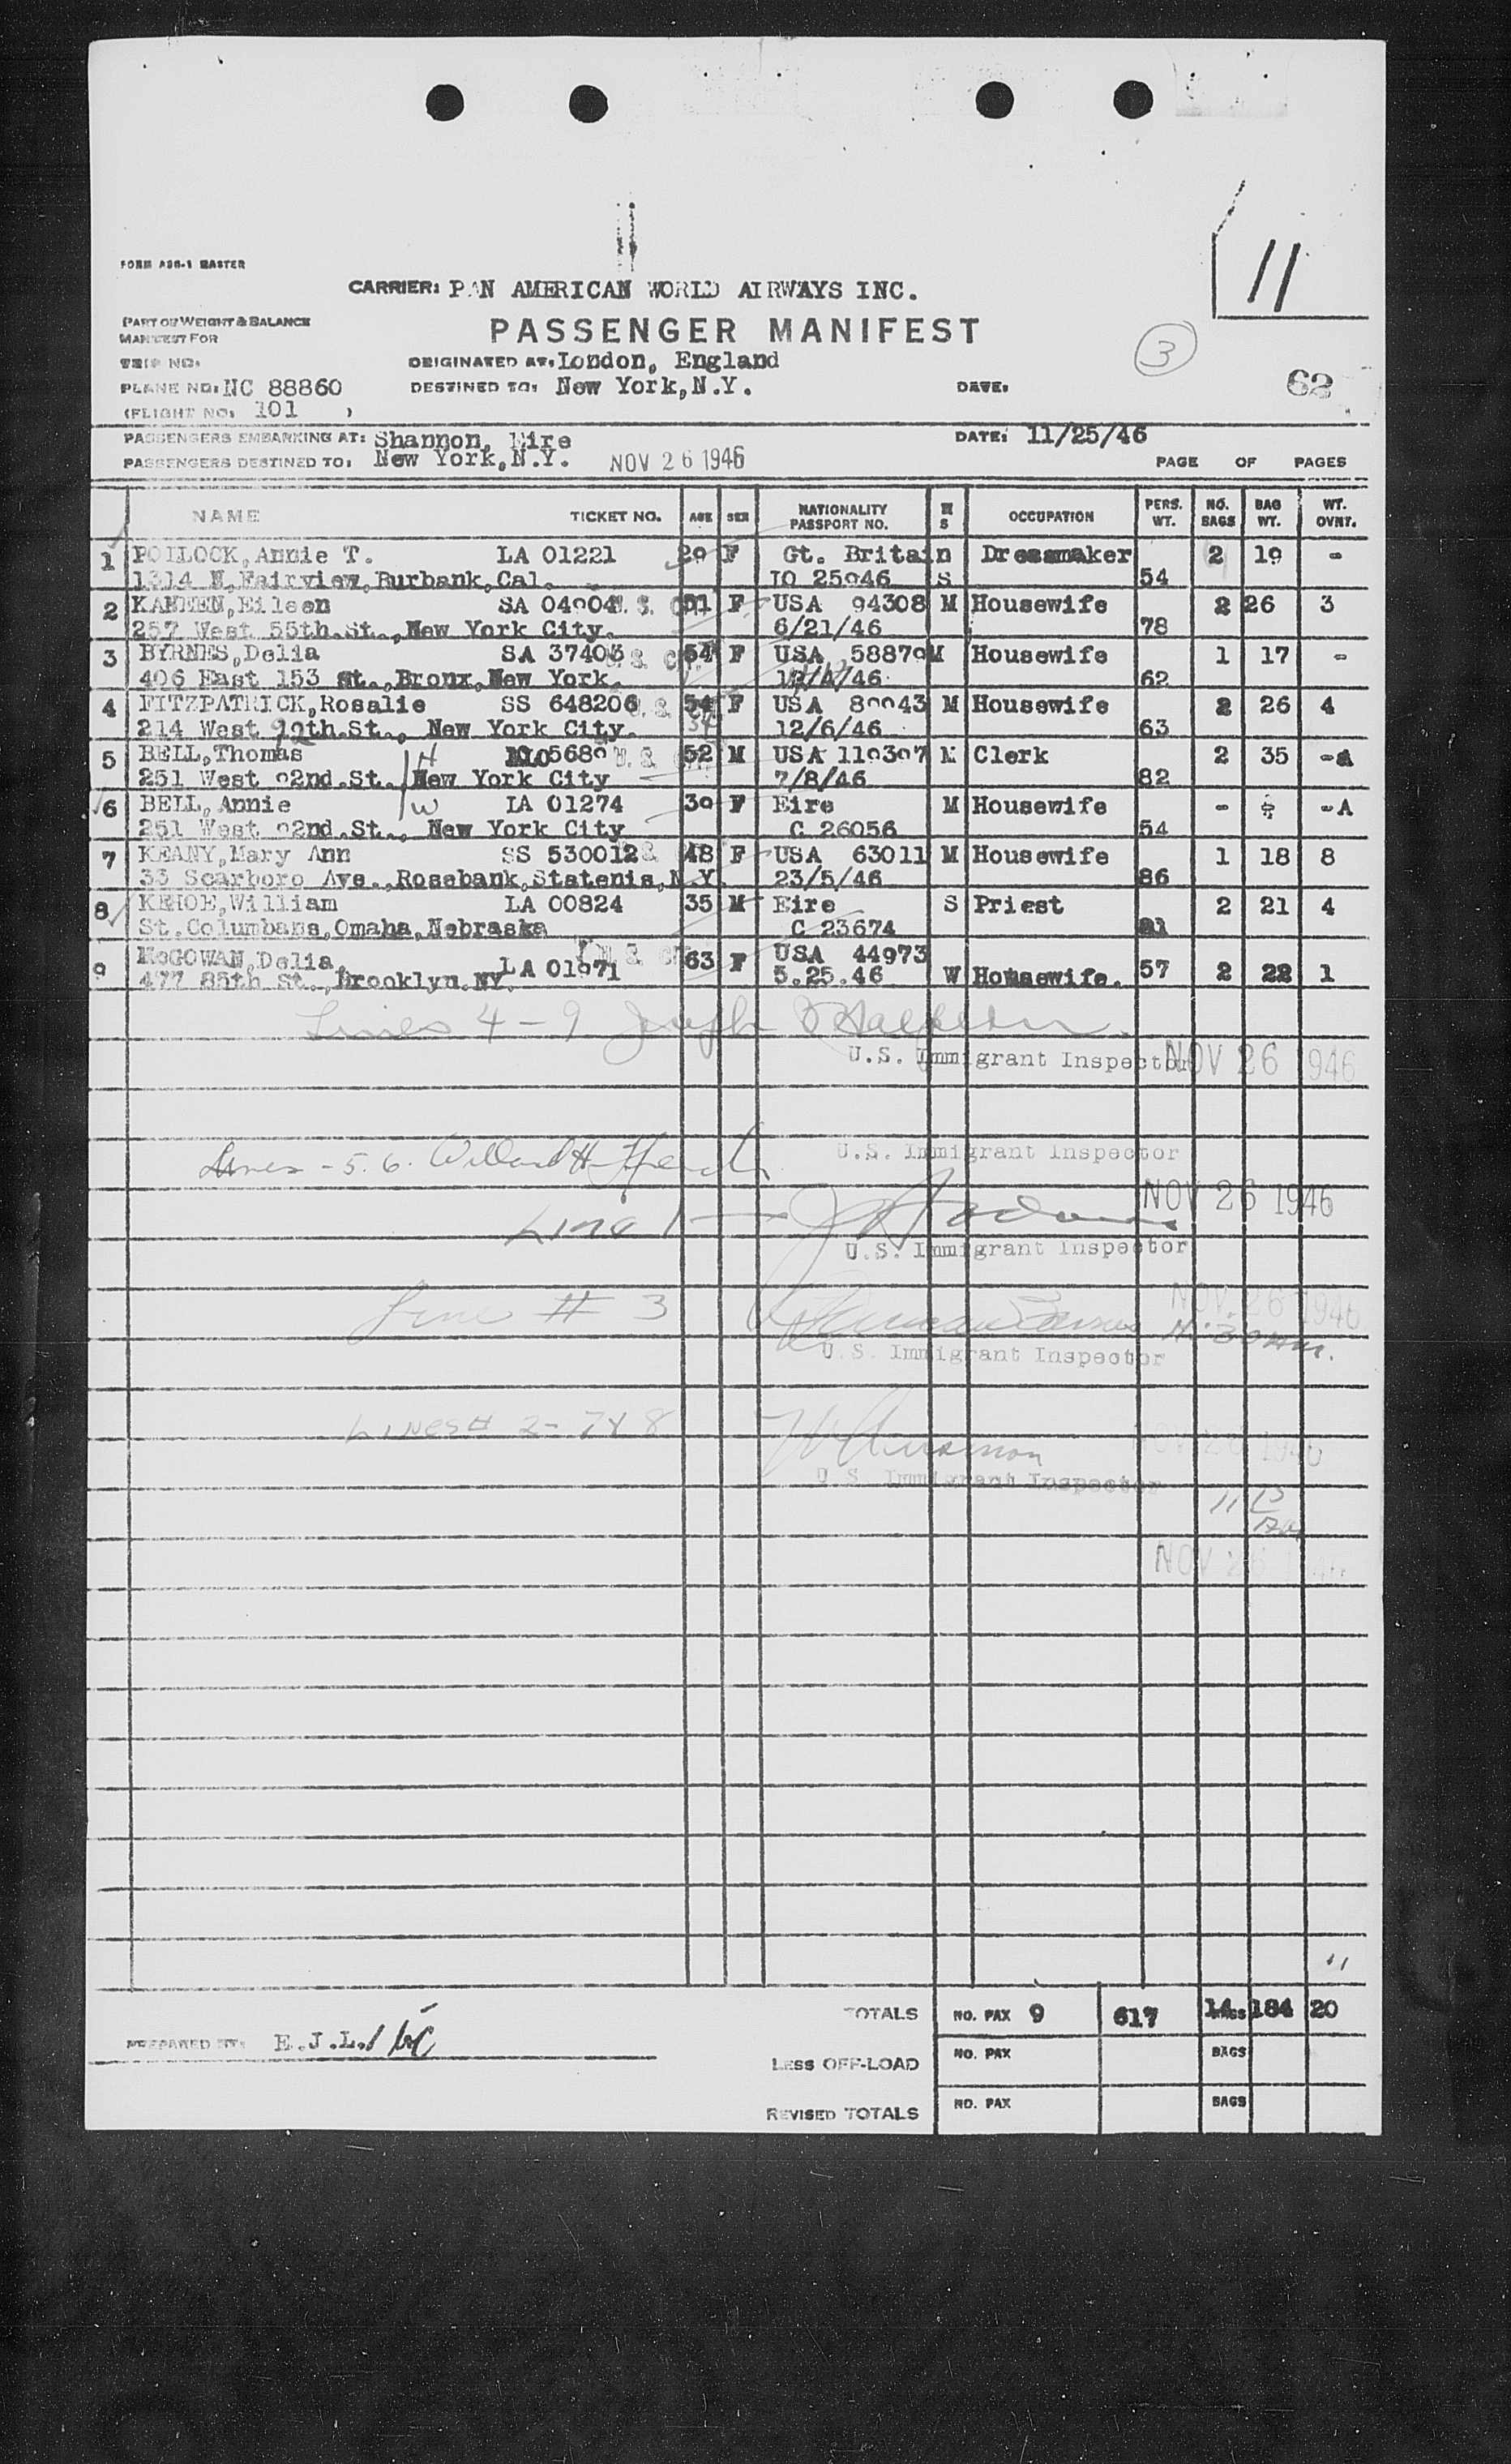 11
FORM ASB-1 MASTER
CARRIER: PAN AMERICAN WORLD AIRWAYS INC.
PART OF WEIGHT & BALANCE
MANIFEST FOR
PASSENGER MANIFEST
3
TRIP NO:
ORIGINATED AT: London, England
PLANE NO: NC 88860
DESTINED TO: New York, N.Y.
DATE:
62
(FLIGHT NO: 101 )
PASSENGERS EMBARKING AT: Shannon, Eire
DATE: 11/25/46
PASSENGERS DESTINED TO: New York, N.Y. NOV 26 1946
PAGE OF PAGES
NAME TICKET NO. AGE SEX NATIONALITY PASSPORT NO. M S OCCUPATION PERS. WT. NO. BAGS BAG WT. WT. OVNT.
1 POLLOCK, Annie T. LA 01221 F Gt. Britain Dressmaker 2 19 -
1314 N. Fairview, Burbank, Cal. S 54
2 Eileen F USA 94308 M Housewife 2 26 3
257 West 55th. St., New York City. 6/21/46 78
3 BYRNES, Delia SA 37403 54 F USA 58879 M Housewife 1 17 -
406 East 153 St., Bronx, New York. 62
4 FITZPATRICK, Rosalie SS 648206 54 F USA M Housewife 2 26 4
214 West 92th. St., New York City. 12/6/46 63
5 BELL, Thomas H 52 M USA M Clerk 2 35 -A
251 West 92nd. St., New York City 7/8/46 82
6 BELL, Annie W LA 01274 F Eire M Housewife - -A
251 West 92nd. St., New York City C 26056 54
7 KEANY, Mary Ann SS 530012 48 F USA 63011 M Housewife 1 18 8
33 Scarboro Ave., Rosebank, Statenis, N.Y. 23/5/46 86
8 KEHOE, William LA 00824 35 M Eire S Priest 2 21 4
St. Columbans, Omaha, Nebraska C 23674 81
9 McGOWAN, Delia, LA 01971 63 F USA 44973 W Housewife. 57 2 22 1
477 85th St., Brooklyn. NY. 5.25.46
Lines 4 - 9 Joseph Halpern
U.S. Immigrant Inspector NOV 26 1946
Lines - 5. 6. Willard H.
U.S. Immigrant Inspector
NOV 26 1946
Line 1
U.S. Immigrant Inspector
Line # 3
NOV 26 1946
11:30 AM.
U.S. Immigrant Inspector
LINES# 2- 7 & 8
NOV 26 1946
U.S. Immigrant Inspector
NOV 26
TOTALS NO. PAX 9 617 14 BAGS 184 20
PREPARED BY: E.J.L.
LESS OFF-LOAD NO. PAX BAGS
REVISED TOTALS NO. PAX BAGS